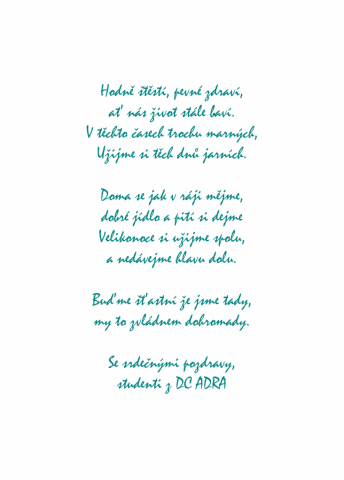 Hodně štěstí, pevné zdraví,
ať nás život stále baví.
V těchto časech trochu marných,
Užijme si těch dnů jarních.
Doma se jak v ráji mějme,
dobré jídlo a pití si dejme
Velikonoce si užijme spolu,
a nedávejme hlavu dolu.
Buďme šťastní že jsme tady,
my to zvládnem dohromady.
Se srdečnými pozdravy,
studenti z DC ADRA